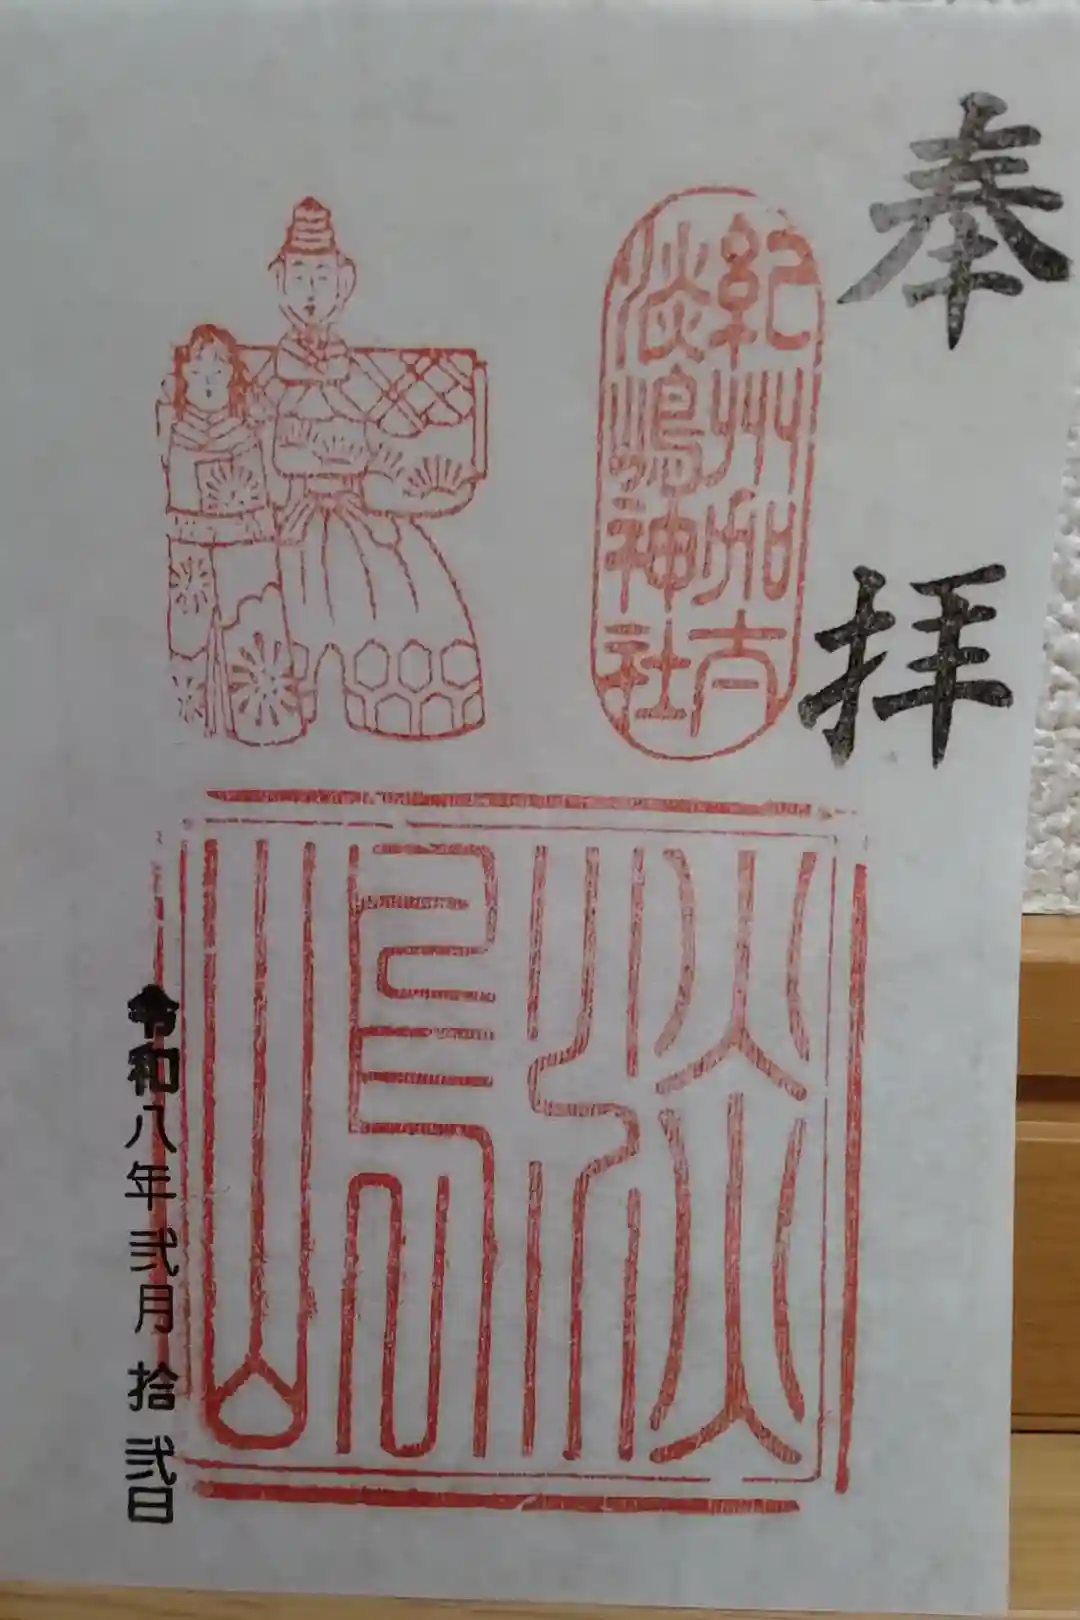 奉拝
紀州加太
淡嶋神社
淡嶋
令和八年弐月拾弐日